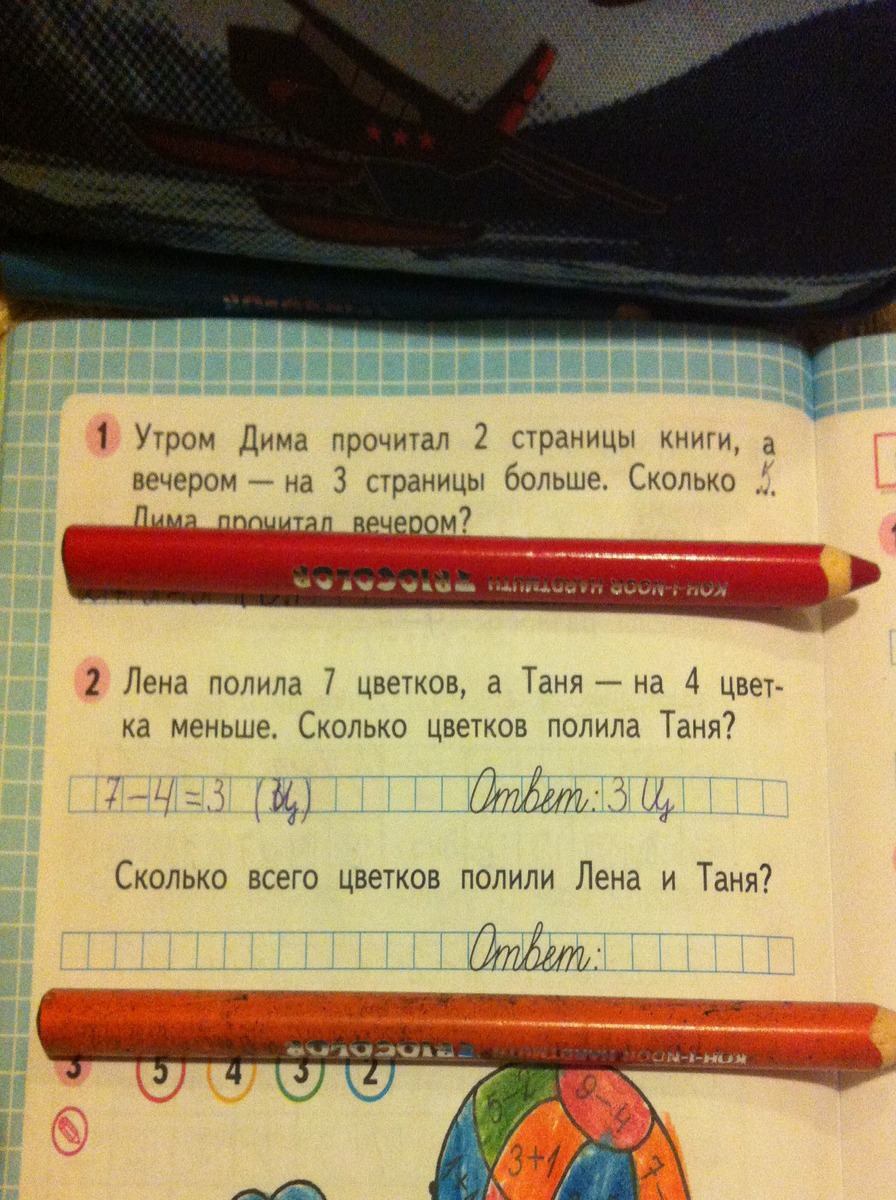 1 Утром Дима прочитал 2 страницы книги, а
вечером — на 3 страницы больше. Сколько
Дима прочитал вечером?
KOH-I-NOOR HARDTMUTH TRIOCOLOR
2 Лена полила 7 цветков, а Таня — на 4 цвет-
ка меньше. Сколько цветков полила Таня?
7-4=3 Ответ: 3 ц
Сколько всего цветков полили Лена и Таня?
Ответ:
KOH-I-NOOR HARDTMUTH TRIOCOLOR
3 5 4 3 2
5-2 9-4
3+1 7-